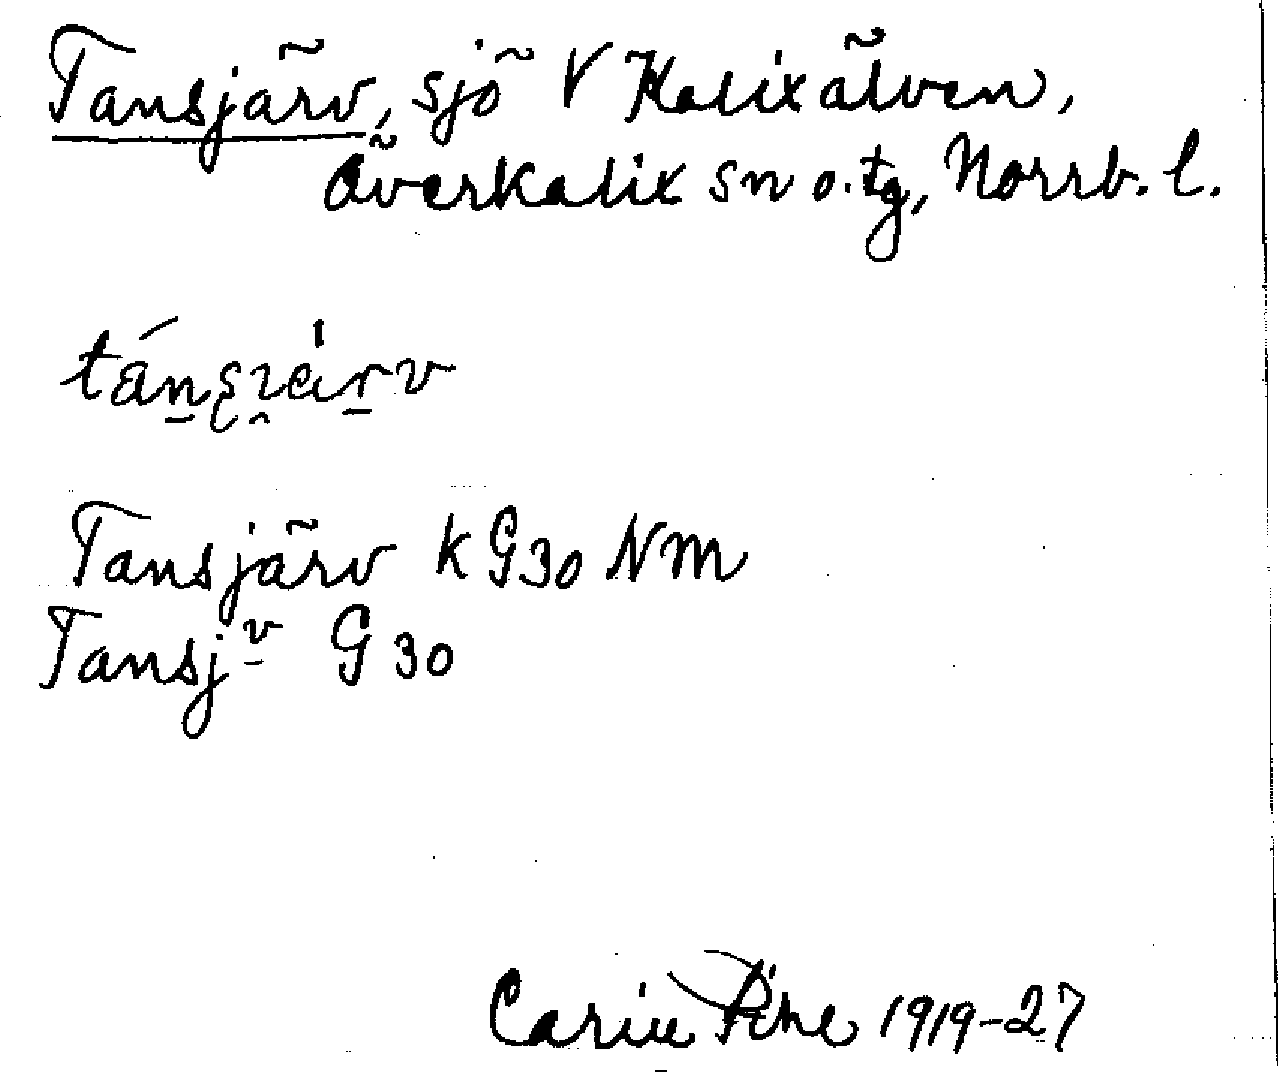 Tansjärv, sjö V Kalixälven,
Överkalix sn o. tg, Norrb. l.
Tansjärv k G30 NM
Tansjv G 30
Carin Pihl 1919-27